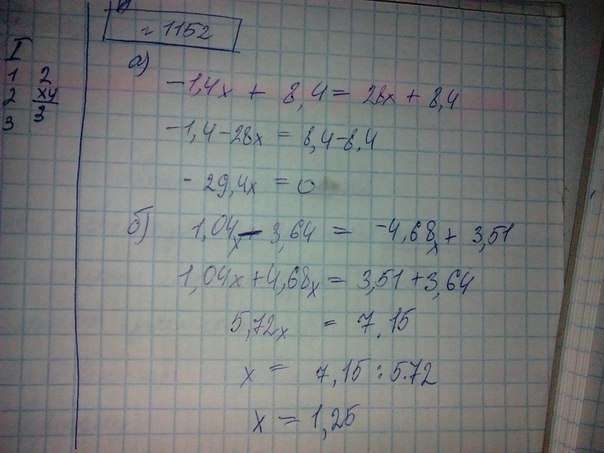 1152
I
1 2
2 x4
3 3
а)
-1,4x + 8,4 = 28x + 8,4
-1,4-28x = 8,4-8,4
- 29,4x = 0
б) 1,04x - 3,64 = -4,68x + 3,51
1,04x+4,68x = 3,51+3,64
5,72x = 7.15
x = 7,15 : 5.72
x = 1,25